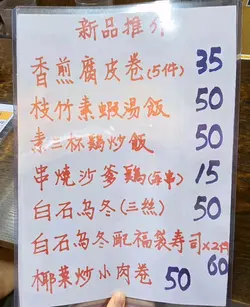 新品推介
香煎腐皮卷(5件) 35
枝竹素蝦湯飯 50
素三杯鷄炒飯 50
串燒沙爹鷄(每串) 15
白石烏冬(三絲) 50
白石烏冬配福袋寿司x2件 60
椰菜炒小肉卷 50